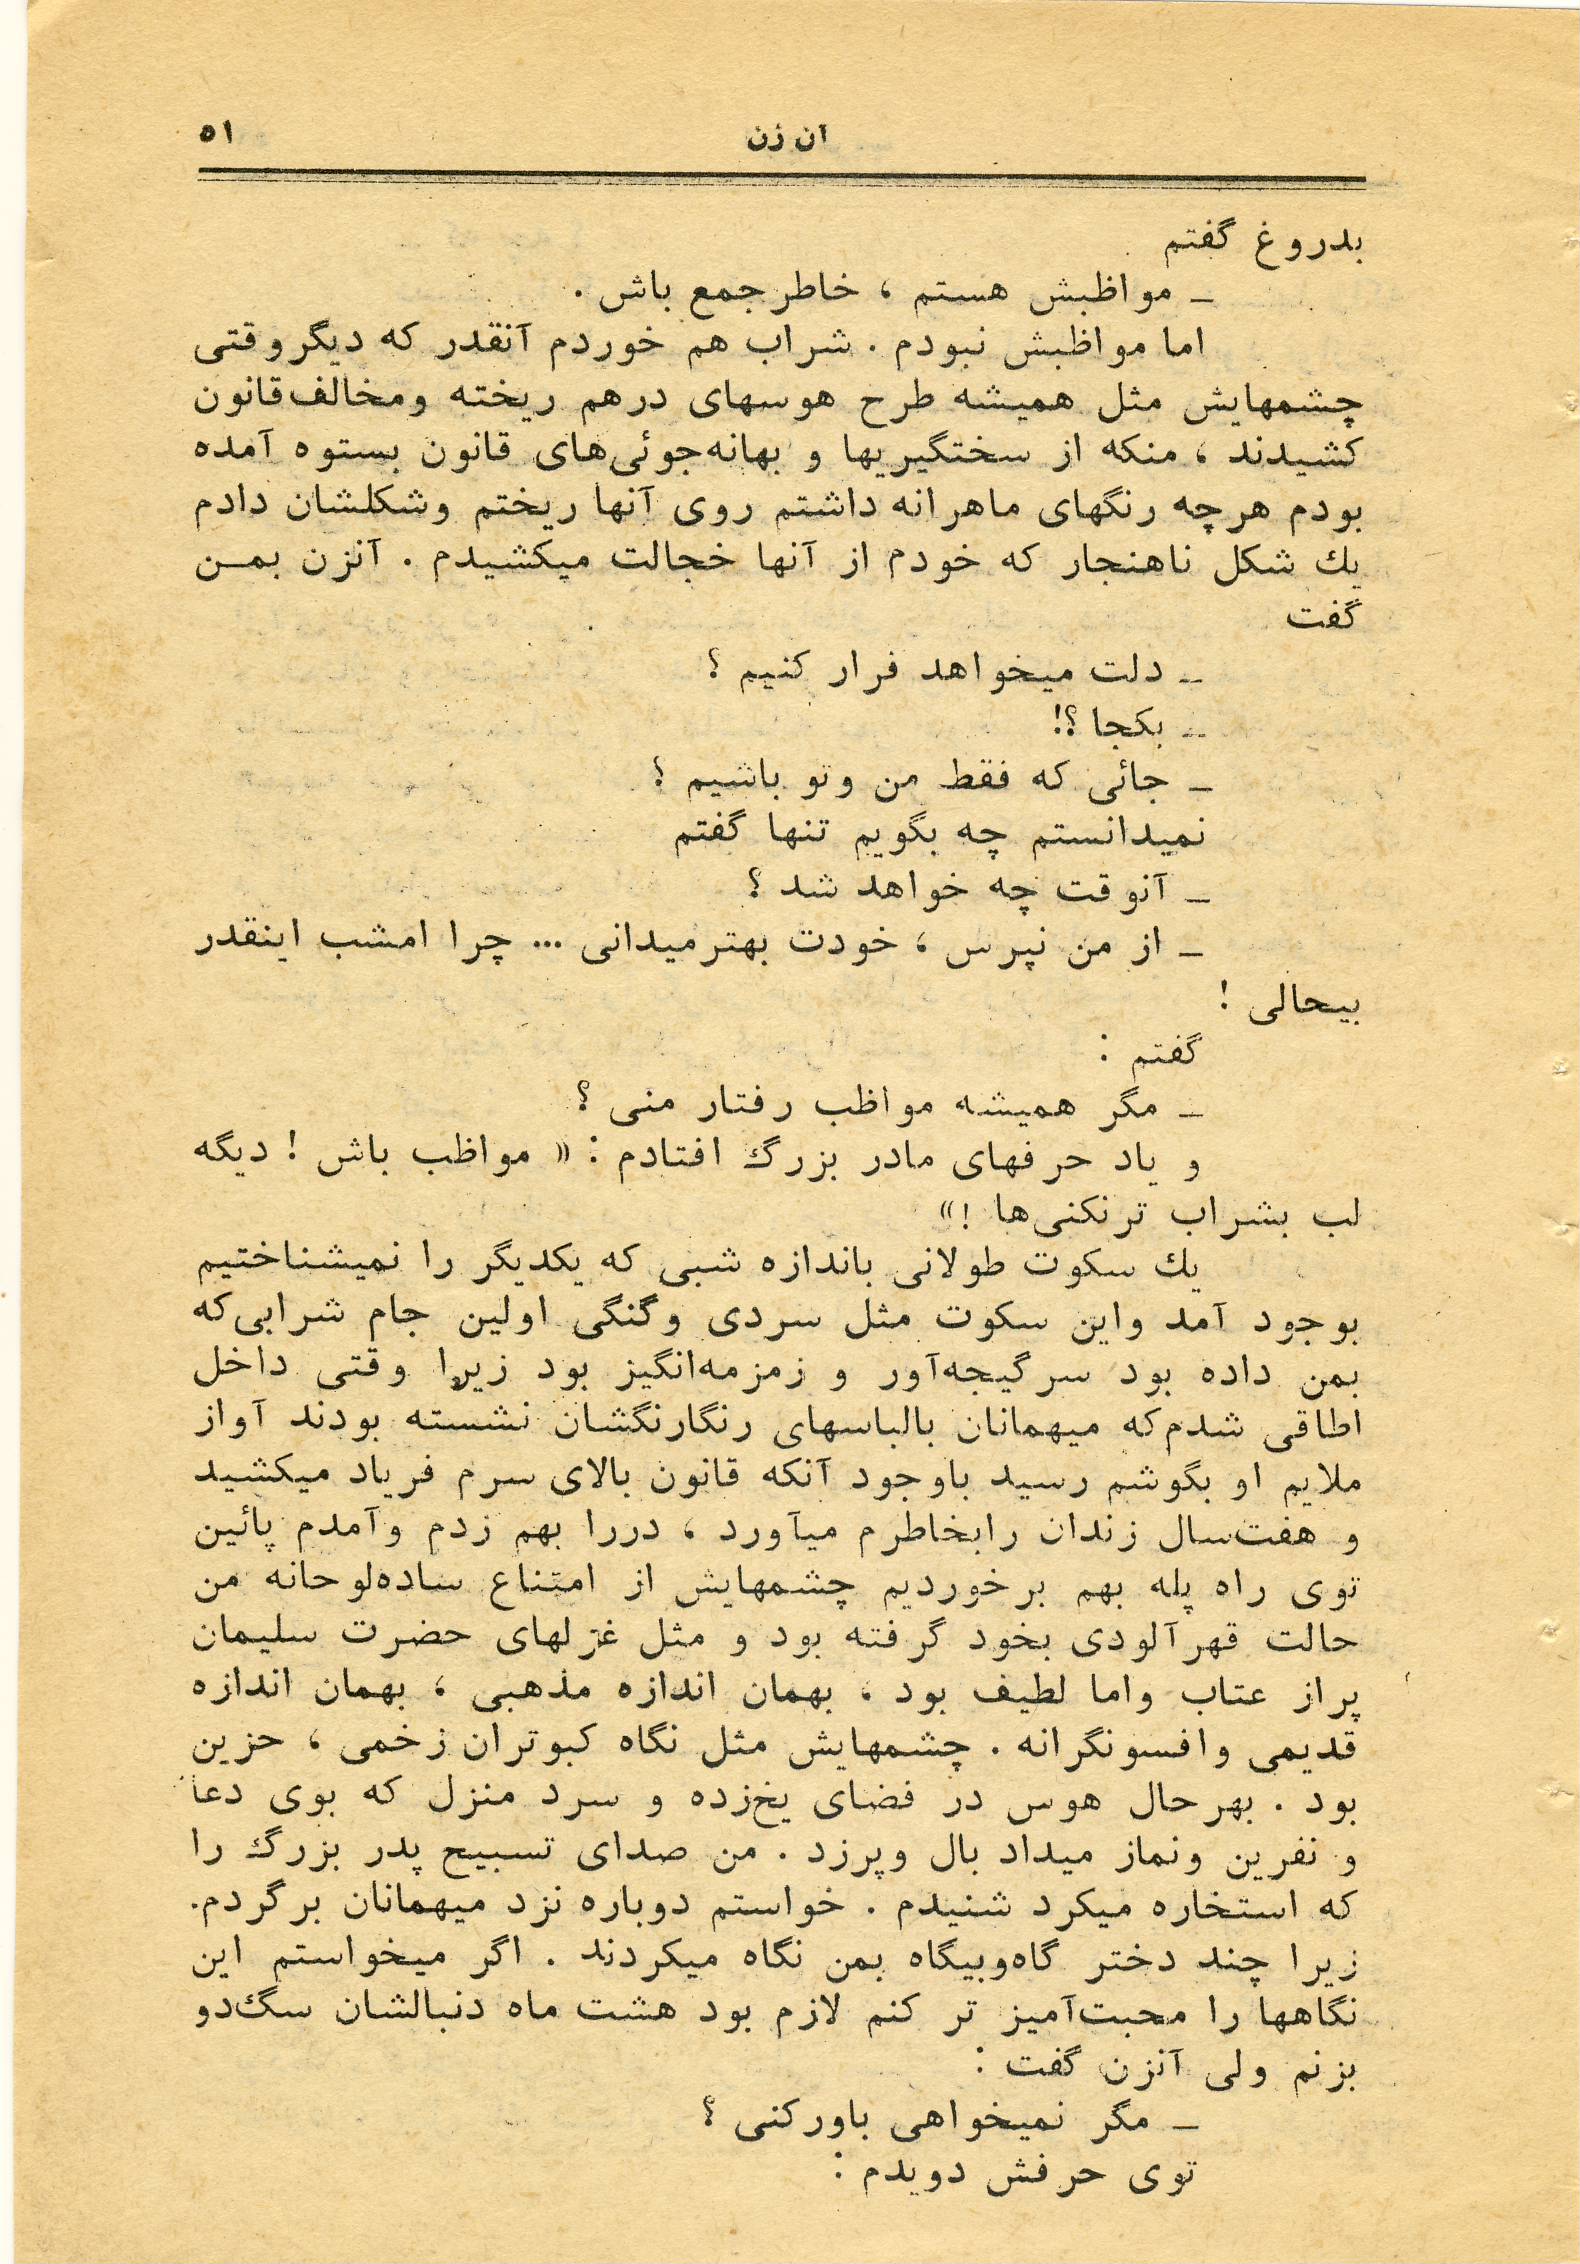 آن زن ۵۱
بدروغ گفتم
ـ مواظبش هستم ، خاطرجمع باش .
اما مواظبش نبودم . شراب هم خوردم آنقدر که دیگروقتی
چشمهایش مثل همیشه طرح هوسهای درهم ریخته ومخالف‌قانون
کشیدند ، منکه از سختگیریها و بهانه‌جوئی‌های قانون بستوه آمده
بودم هرچه رنگهای ماهرانه داشتم روی آنها ریختم وشکلشان دادم
یك شکل ناهنجار که خودم از آنها خجالت میکشیدم . آنزن بمــن
گفت
ـ دلت میخواهد فرار کنیم ؟
ـ بکجا ؟!
ـ جائی که فقط من وتو باشیم ؟
نمیدانستم چه بگویم تنها گفتم
ـ آنوقت چه خواهد شد ؟
ـ از من نپرس ، خودت بهترمیدانی ... چرا امشب اینقدر
بیحالی !
گفتم :
ـ مگر همیشه مواظب رفتار منی ؟
و یاد حرفهای مادر بزرگ افتادم : « مواظب باش ! دیگه
لب بشراب ترنکنی‌ها !»
یك سکوت طولانی باندازه شبی که یکدیگر را نمیشناختیم
بوجود آمد واین سکوت مثل سردی وگنگی اولین جام شرابی‌که
بمن داده بود سرگیجه‌آور و زمزمه‌انگیز بود زیرا وقتی داخل
اطاقی شدم‌که میهمانان بالباسهای رنگارنگشان نشسته بودند آواز
ملایم او بگوشم رسید باوجود آنکه قانون بالای سرم فریاد میکشید
و هفت‌سال زندان رابخاطرم میآورد ، دررا بهم زدم وآمدم پائین
توی راه پله بهم برخوردیم چشمهایش از امتناع ساده‌لوحانه من
حالت قهرآلودی بخود گرفته بود و مثل غزلهای حضرت سلیمان
پراز عتاب واما لطیف بود ، بهمان اندازه مذهبی ، بهمان اندازه
قدیمی وافسونگرانه . چشمهایش مثل نگاه کبوتران زخمی ، حزین
بود . بهرحال هوس در فضای یخ‌زده و سرد منزل که بوی دعا
و نفرین ونماز میداد بال وپرزد . من صدای تسبیح پدر بزرگ را
که استخاره میکرد شنیدم . خواستم دوباره نزد میهمانان برگردم.
زیرا چند دختر گاه‌وبیگاه بمن نگاه میکردند . اگر میخواستم این
نگاهها را محبت‌آمیز تر کنم لازم بود هشت ماه دنبالشان سگ‌دو
بزنم ولی آنزن گفت :
ـ مگر نمیخواهی باورکنی ؟
توی حرفش دویدم :